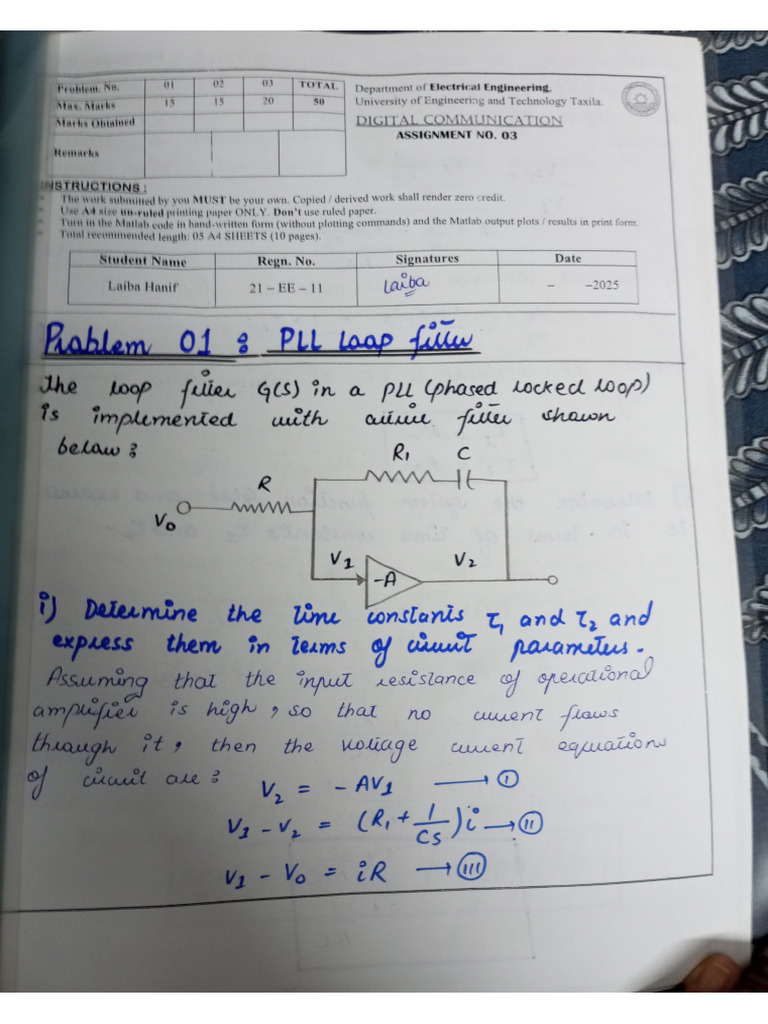 Problem. No. 01 02 03 TOTAL
Max. Marks 15 15 20 50
Marks Obtained
Remarks
Department of Electrical Engineering.
University of Engineering and Technology Taxila.
DIGITAL COMMUNICATION
ASSIGNMENT NO. 03
INSTRUCTIONS :
The work submitted by you MUST be your own. Copied / derived work shall render zero credit.
Use A4 size un-ruled printing paper ONLY. Don't use ruled paper.
Turn in the Matlab code in hand-written form (without plotting commands) and the Matlab output plots / results in print form.
Total recommended length: 05 A4 SHEETS (10 pages).
Student Name Regn. No. Signatures Date
Laiba Hanif 21 – EE – 11 Laiba – –2025
Problem 01 : PLL Loop filter
The loop filter G(S) in a PLL (phased locked loop)
is implemented with active filter shown
below :
R₁ C
R
V₀
V₁ -A V₂
i) Determine the time constants τ₁ and τ₂ and
express them in terms of circuit parameters.
Assuming that the input resistance of operational
amplifier is high, so that no current flows
through it, then the voltage current equations
of circuit are :
V₂ = - AV₁ → I
V₁ - V₂ = (R₁ + 1/CS) i → II
V₁ - V₀ = iR → III